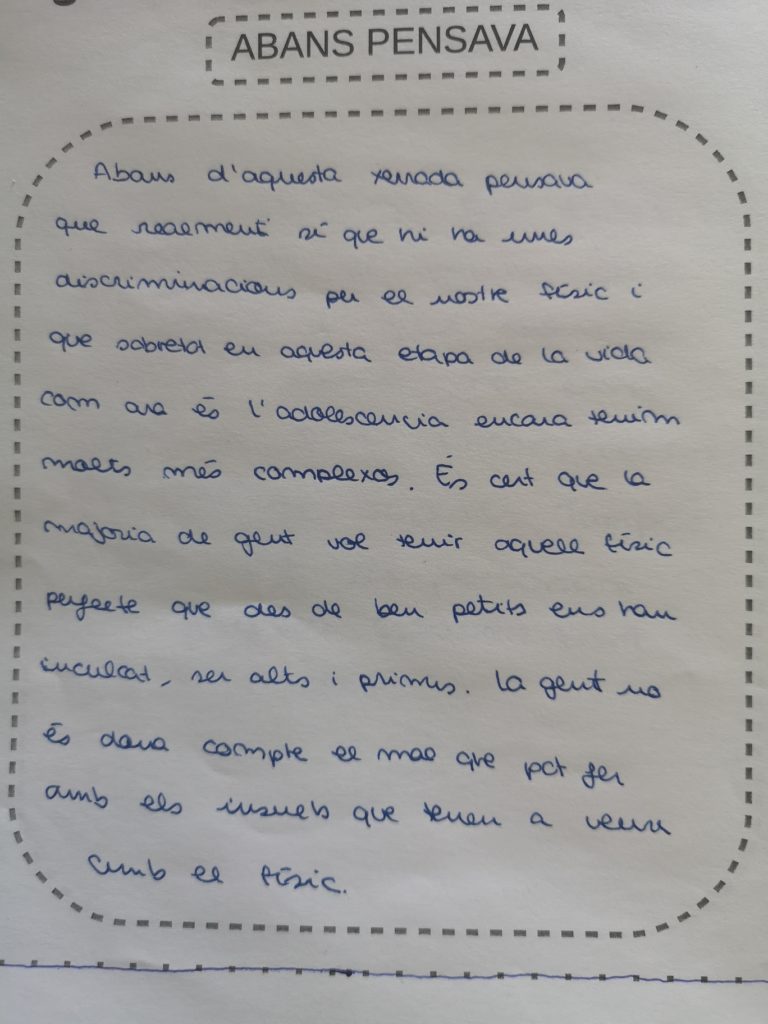 ABANS PENSAVA
Abans d'aquesta xerrada pensava
que realment sí que hi ha unes
discriminacions per el nostre físic i
que sobretot en aquesta etapa de la vida
com ara és l'adolescencia encara tenim
molts més complexos. És cert que la
majoria de gent vol tenir aquell físic
perfecte que des de ben petits ens han
inculcat, ser alts i prims. La gent no
és dona compte el mal que pot fer
amb els insults que tenen a veure
amb el físic.